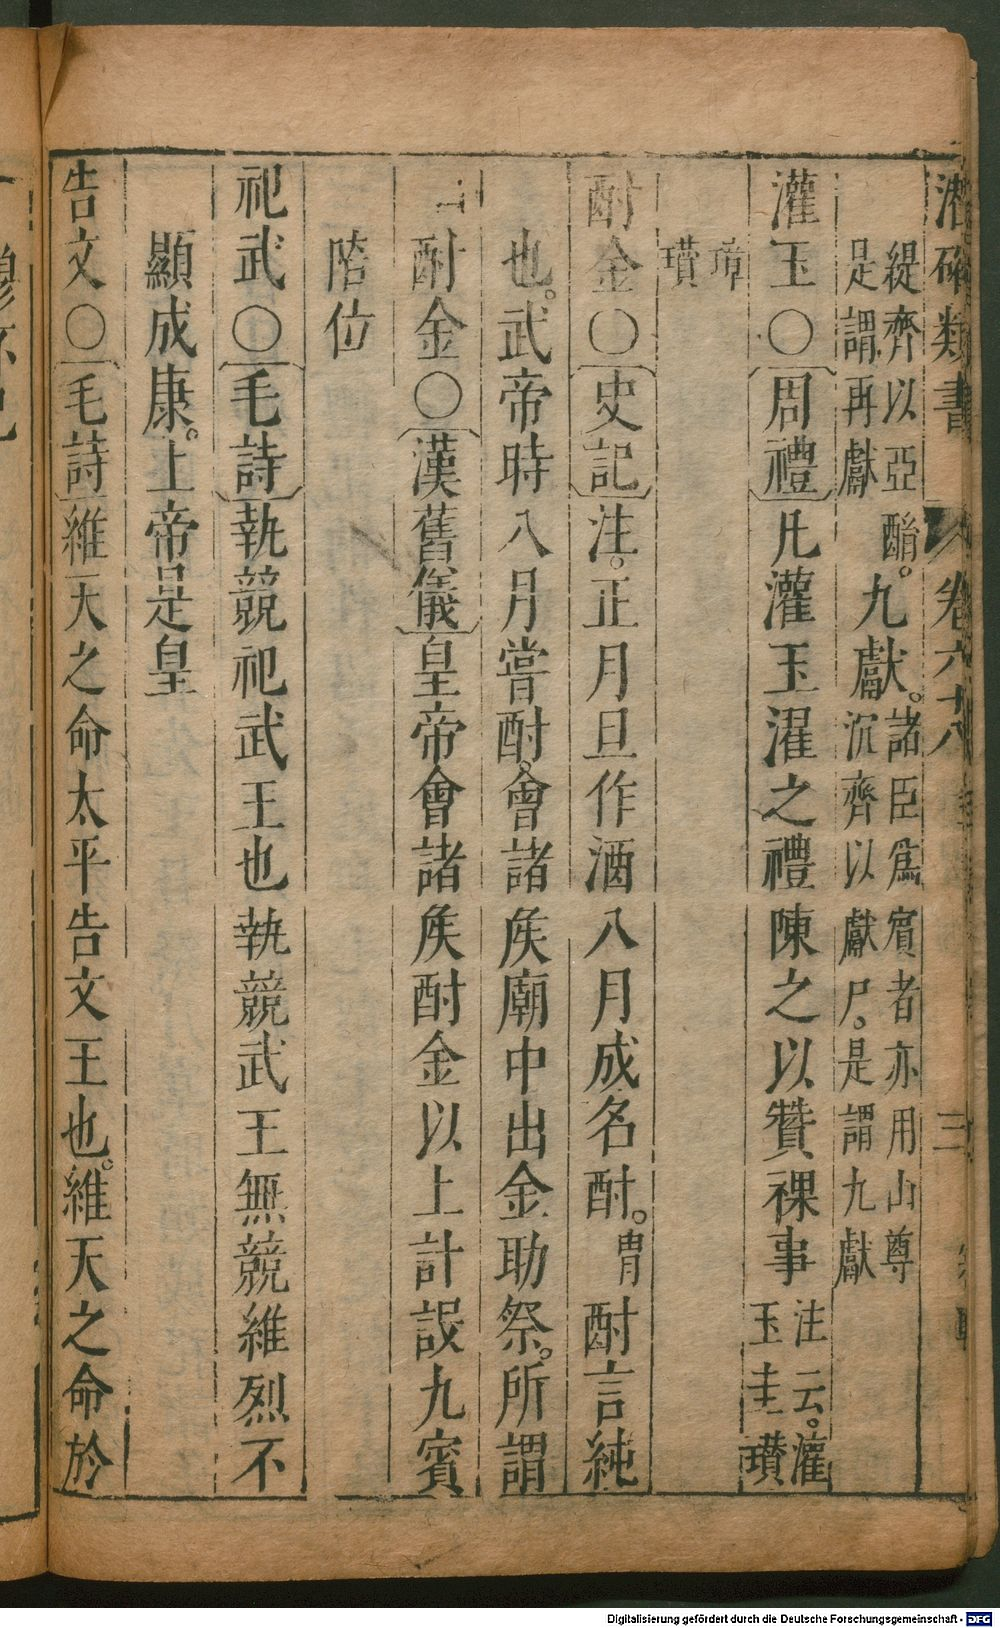 潛確類書 卷六十八 三
緹齊以亞酳。九獻。諸臣爲賓者亦用山尊
是謂再獻 沉齊以獻尸。是謂九獻
灌玉○周禮凡灌玉濯之禮陳之以贊祼事注云。灌玉圭瓚
璋瓚
酎金○史記注。正月旦作酒八月成名酎。酎言純
也。武帝時八月嘗酎。會諸矦廟中出金助祭。所謂
酎金○漢舊儀皇帝會諸矦酎金以上計設九賓
陪位
祀武○毛詩執競祀武王也執競武王無競維烈不
顯成康。上帝是皇
告文○毛詩維天之命太平告文王也。維天之命於
Digitalisierung gefördert durch die Deutsche Forschungsgemeinschaft - DFG